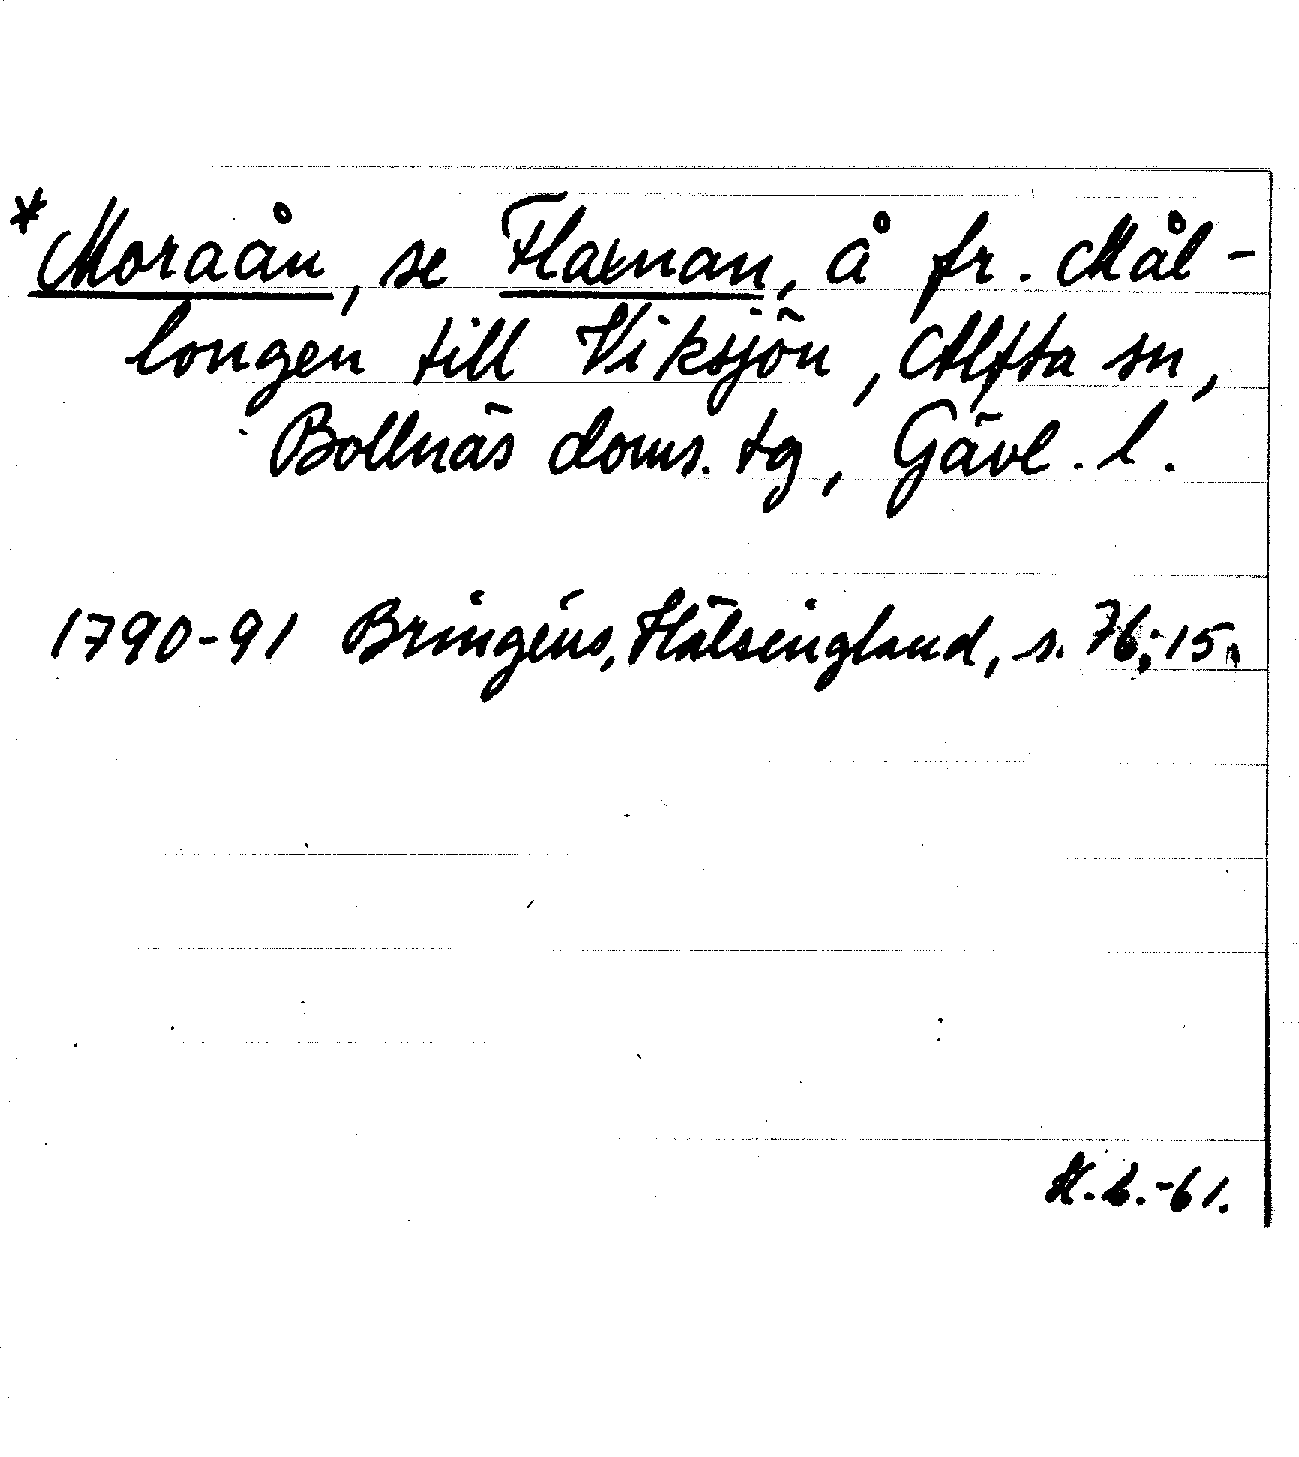 *Moraån, se Flaxnan, å fr. Mål-
longen till Viksjön, Alfta sn,
Bollnäs doms. tg, Gävl. l.
1790-91 Bringéus, Hälseingland, s. 76; 15.
-61.